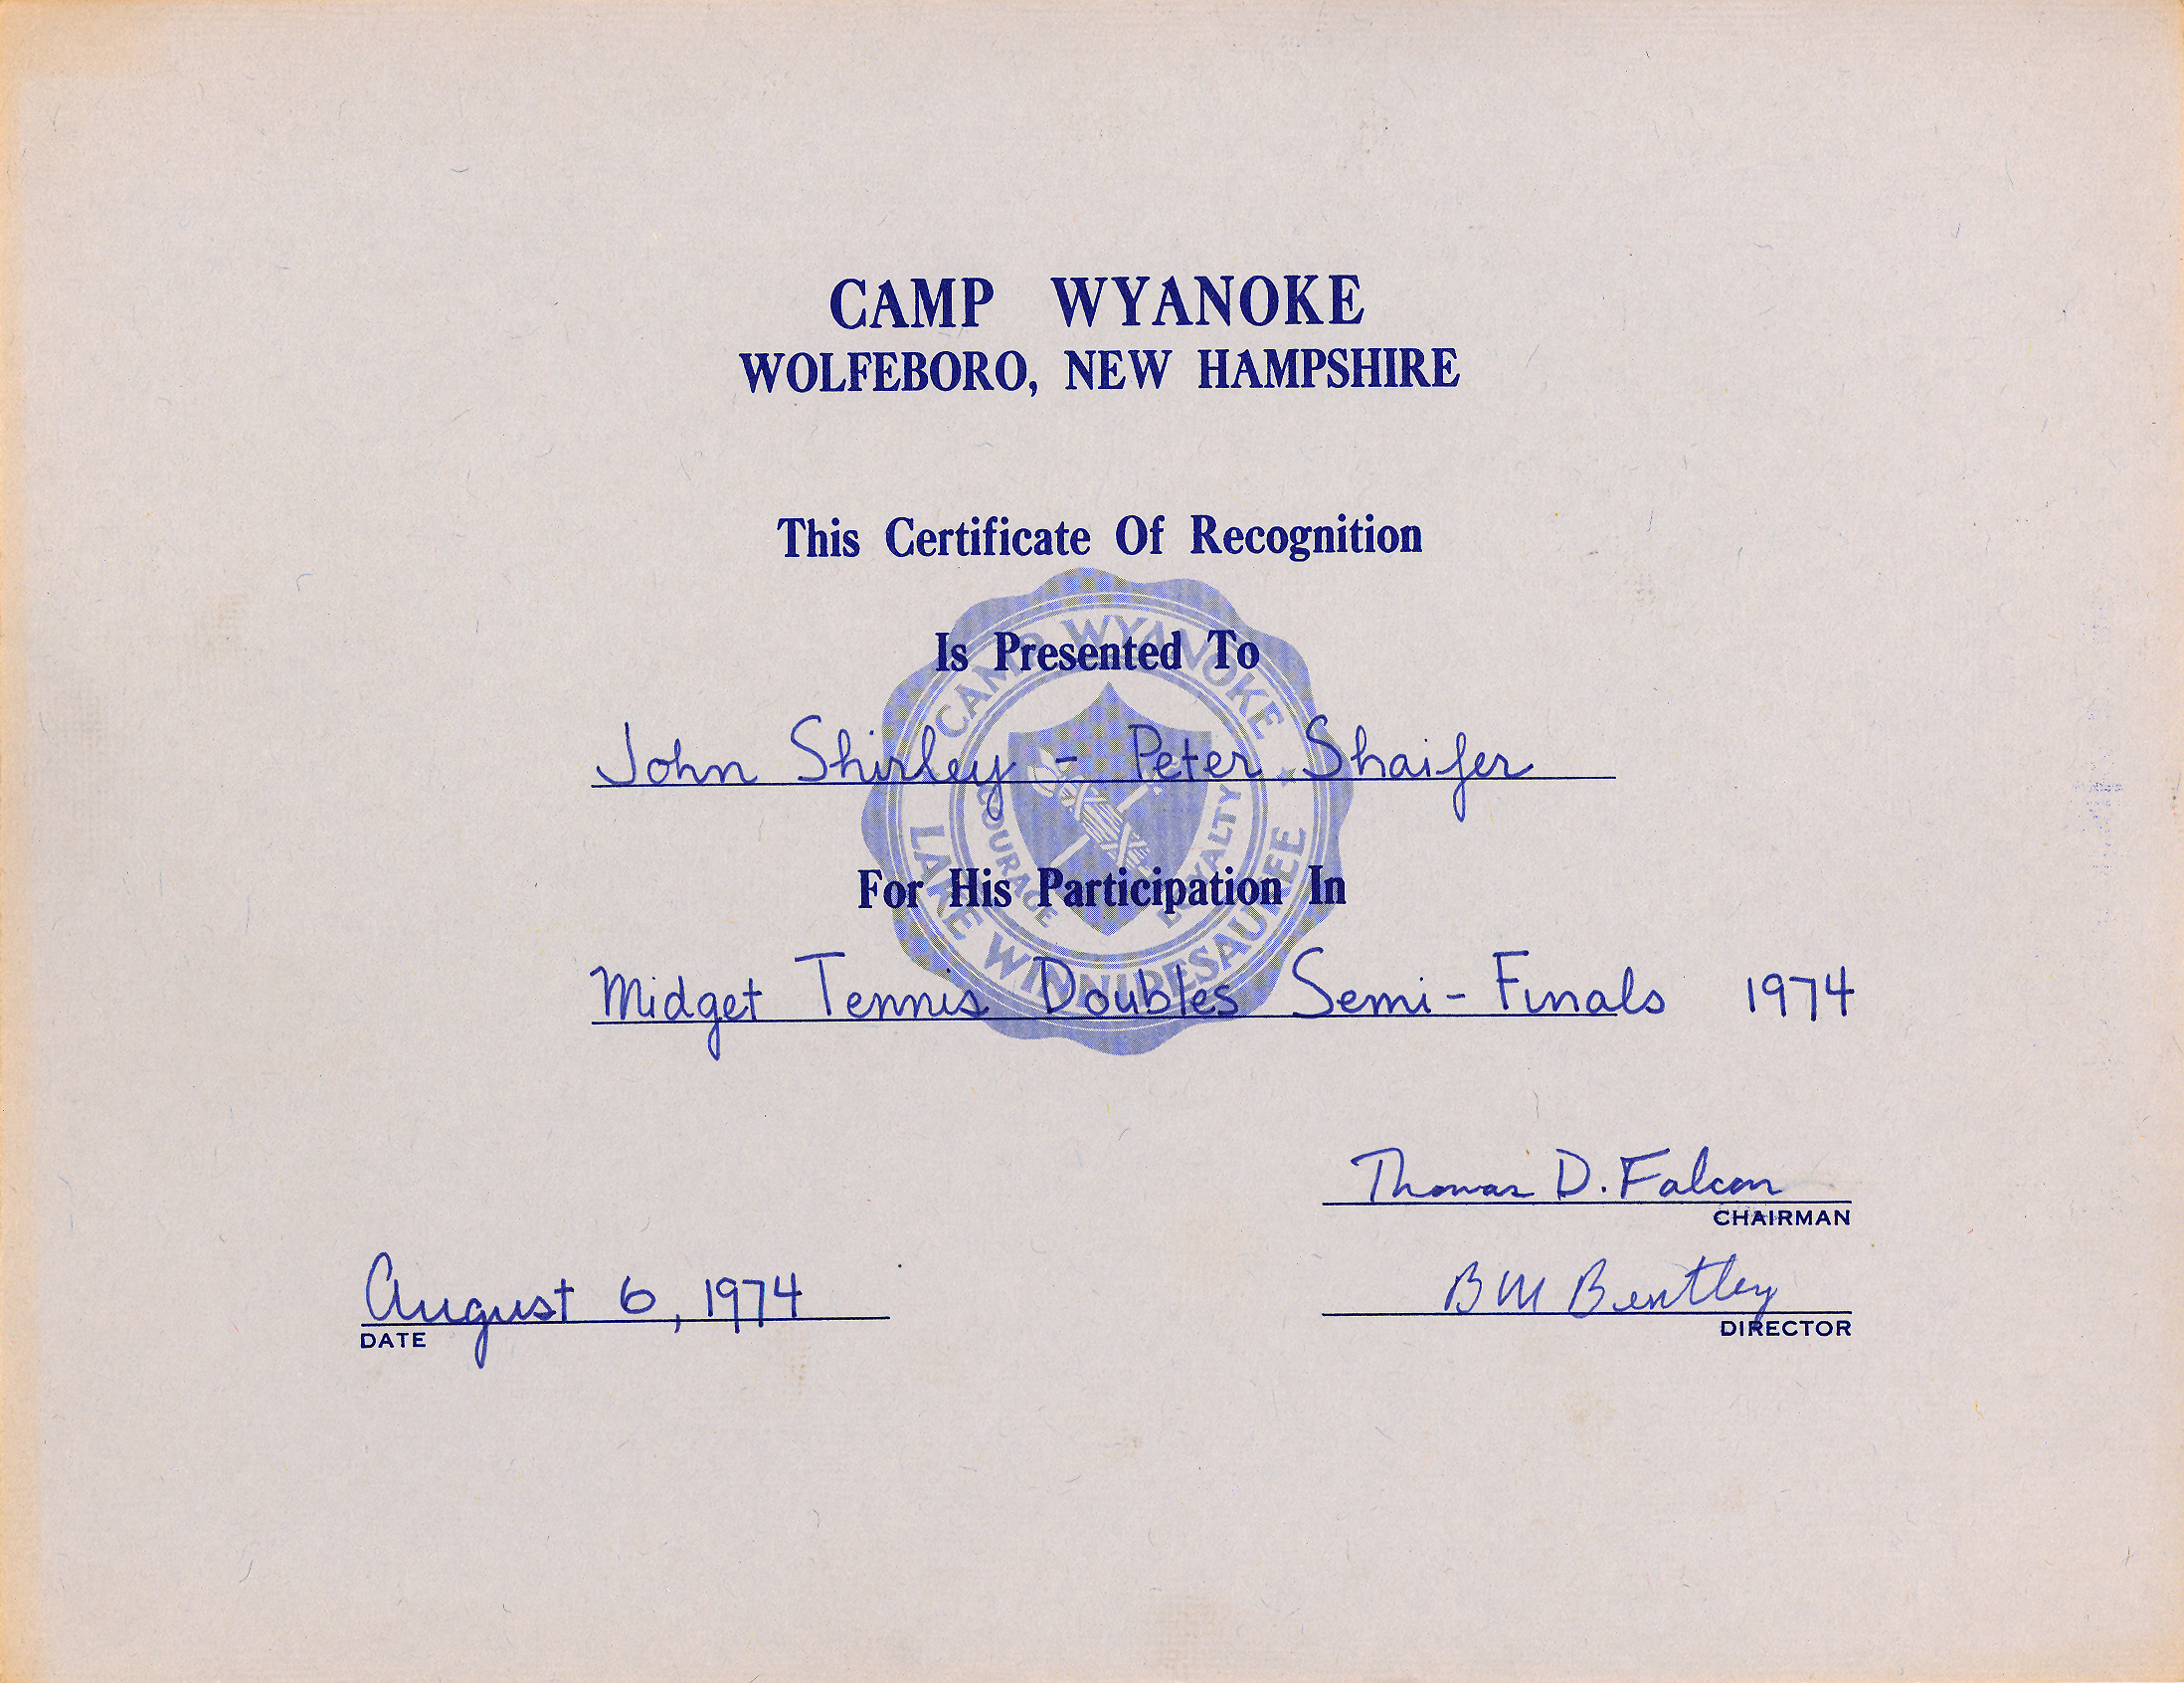 CAMP WYANOKE
WOLFEBORO, NEW HAMPSHIRE
This Certificate Of Recognition
Is Presented To
John Shirley - Peter Shaifer
For His Participation In
Midget Tennis Doubles Semi-Finals 1974
CAMP WYANOKE
COURAGE LOYALTY
LAKE WINNIPESAUKEE
Thomas D. Falcon
CHAIRMAN
August 6, 1974
DATE
B M Bentley
DIRECTOR